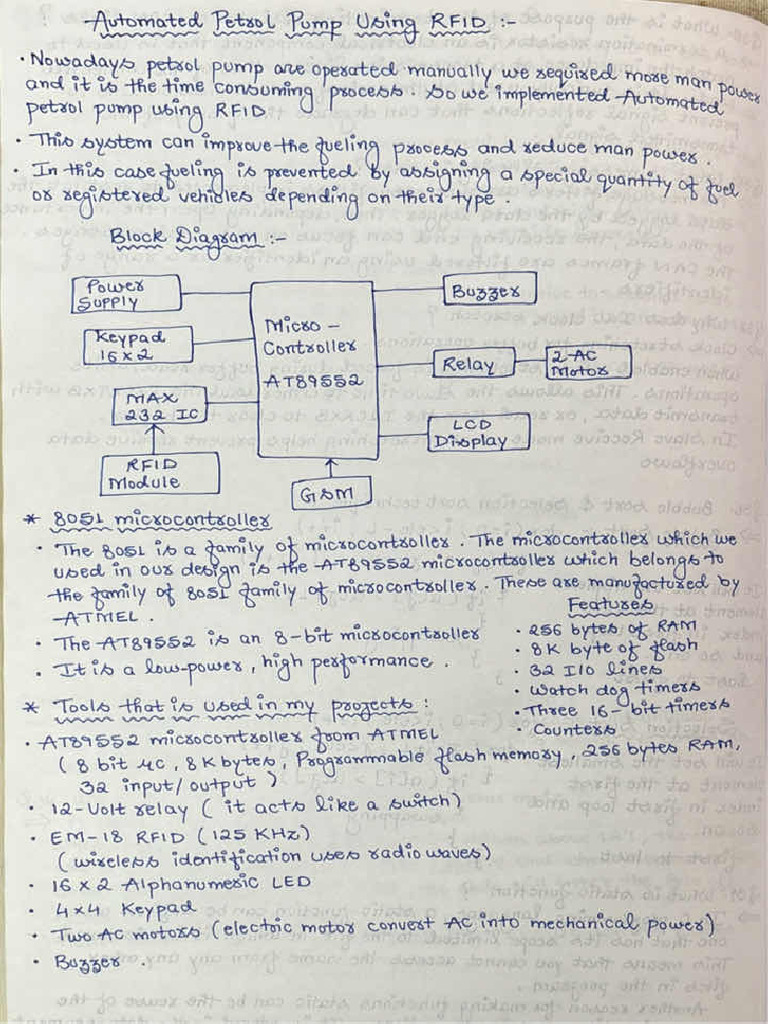 Automated Petrol Pump Using RFID :-
• Nowadays petrol pump are operated manually we required more man power
and it is the time consuming process. So we implemented Automated
petrol pump using RFID.
• This system can improve the fueling process and reduce man power.
• In this case fueling is prevented by assigning a special quantity of fuel
or registered vehicles depending on their type.
Block Diagram :-
Power
Supply
Keypad
16x2
MAX
232 IC
RFID
Module
Micro-
Controller
AT89552
GSM
Buzzer
Relay
2-AC
Motor
LCD
Display
* 8051 microcontroller
• The 8051 is a family of microcontroller. The microcontroller which we
used in our design is the AT89552 microcontroller which belongs to
the family of 8051 family of microcontroller. These are manufactured by
ATMEL.
• The AT89552 is an 8-bit microcontroller
• It is a low-power, high performance.
Features
• 256 bytes of RAM
• 8K byte of flash
• 32 I/O lines
• Watch dog timers
• Three 16-bit timers
• Counters
* Tools that is used in my projects :
• AT89552 microcontroller from ATMEL
(8 bit uc, 8K bytes, Programmable flash memory, 256 bytes RAM,
32 input/output)
• 12-Volt relay (it acts like a switch)
• EM-18 RFID (125 KHz)
(wireless identification uses radio waves)
• 16 x 2 Alphanumeric LED
• 4x4 Keypad
• Two AC motors (electric motor convert AC into mechanical power)
• Buzzer .